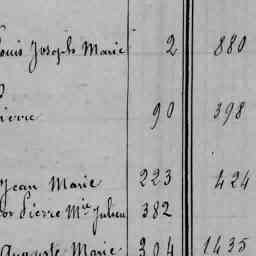 Louis Joseph Marie 2 880
Pierre 90 398
Jean Marie 223 424
Pierre Mie Julien 382
Auguste Marie 304 1435